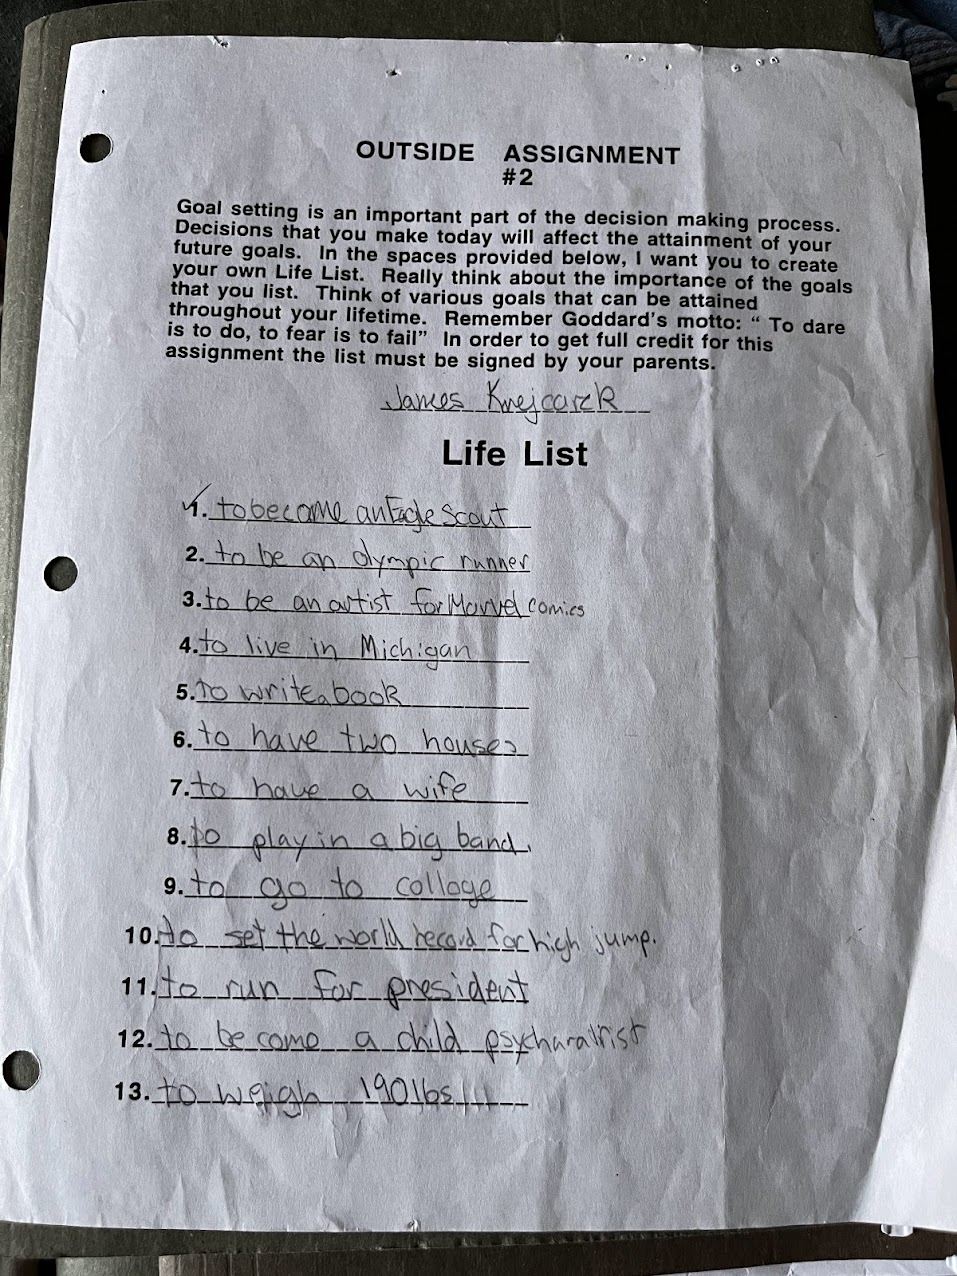 OUTSIDE ASSIGNMENT
#2
Goal setting is an important part of the decision making process.
Decisions that you make today will affect the attainment of your
future goals. In the spaces provided below, I want you to create
your own Life List. Really think about the importance of the goals
that you list. Think of various goals that can be attained
throughout your lifetime. Remember Goddard's motto: “ To dare
is to do, to fear is to fail” In order to get full credit for this
assignment the list must be signed by your parents.
James
Life List
1. to become an Eagle Scout
2. to be an olympic runner
3. to be an artist for Marvel comics
4. to live in Michigan
5. to write a book
6. to have two houses
7. to have a wife
8. to play in a big band.
9. to go to colloge
10. to set the world record for high jump.
11. to run for president
12. to become a child
13. to weigh 190 lbs